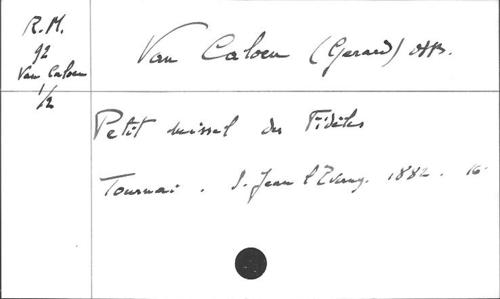 R.M.
92
Van Caloen
1/2
Van Caloen (Gerard) OSB.
Petit missel des Fidèles
Tournai. S. Jean l'Evang. 1882. 16